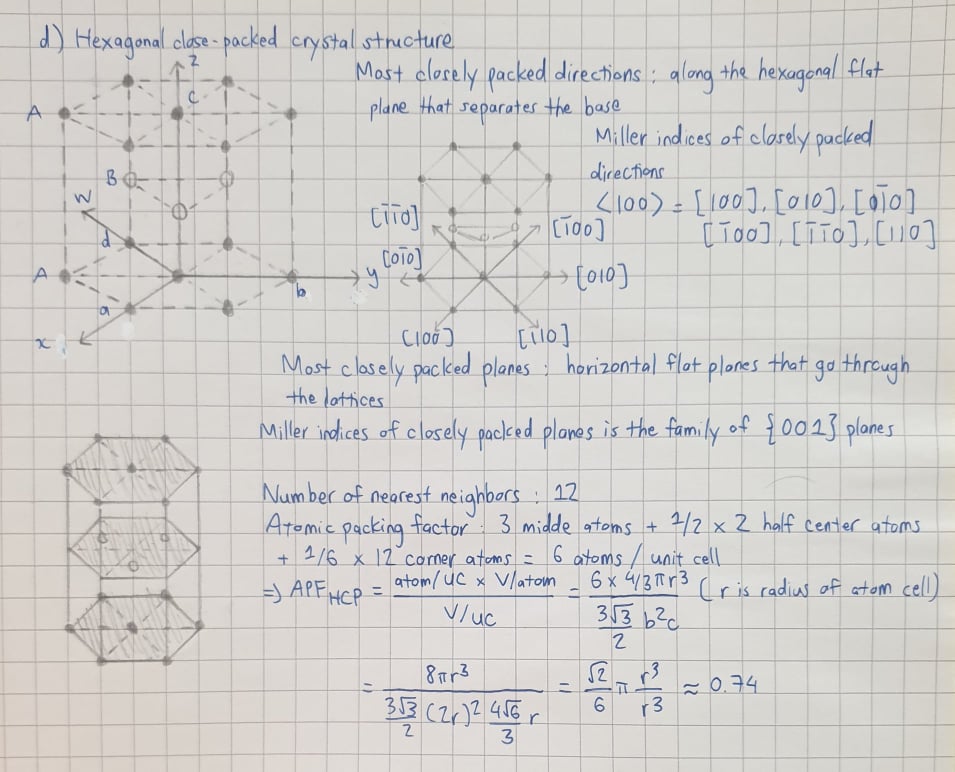 d) Hexagonal close-packed crystal structure
Most closely packed directions : along the hexagonal flat
plane that separates the base
Miller indices of closely packed
directions
<100> = [100], [010], [01̄0]
[1̄00], [1̄1̄0], [110]
z
C
A
B
W
d
A
a
x
b
y
[1̄1̄0]
[1̄00]
[01̄0]
[010]
[100]
[1̄10]
Most closely packed planes : horizontal flat planes that go through
the lattices
Miller indices of closely packed planes is the family of {001} planes
Number of nearest neighbors : 12
Atomic packing factor : 3 midde atoms + 1/2 × 2 half center atoms
+ 1/6 × 12 corner atoms = 6 atoms / unit cell
=> APF_HCP = (atom/UC × V/atom) / (V/UC) = (6 × 4/3πr³) / (3√3/2 b²c) (r is radius of atom cell)
= 8πr³ / (3√3/2 (2r)² 4√6/3 r) = √2/6 π r³/r³ ≈ 0.74